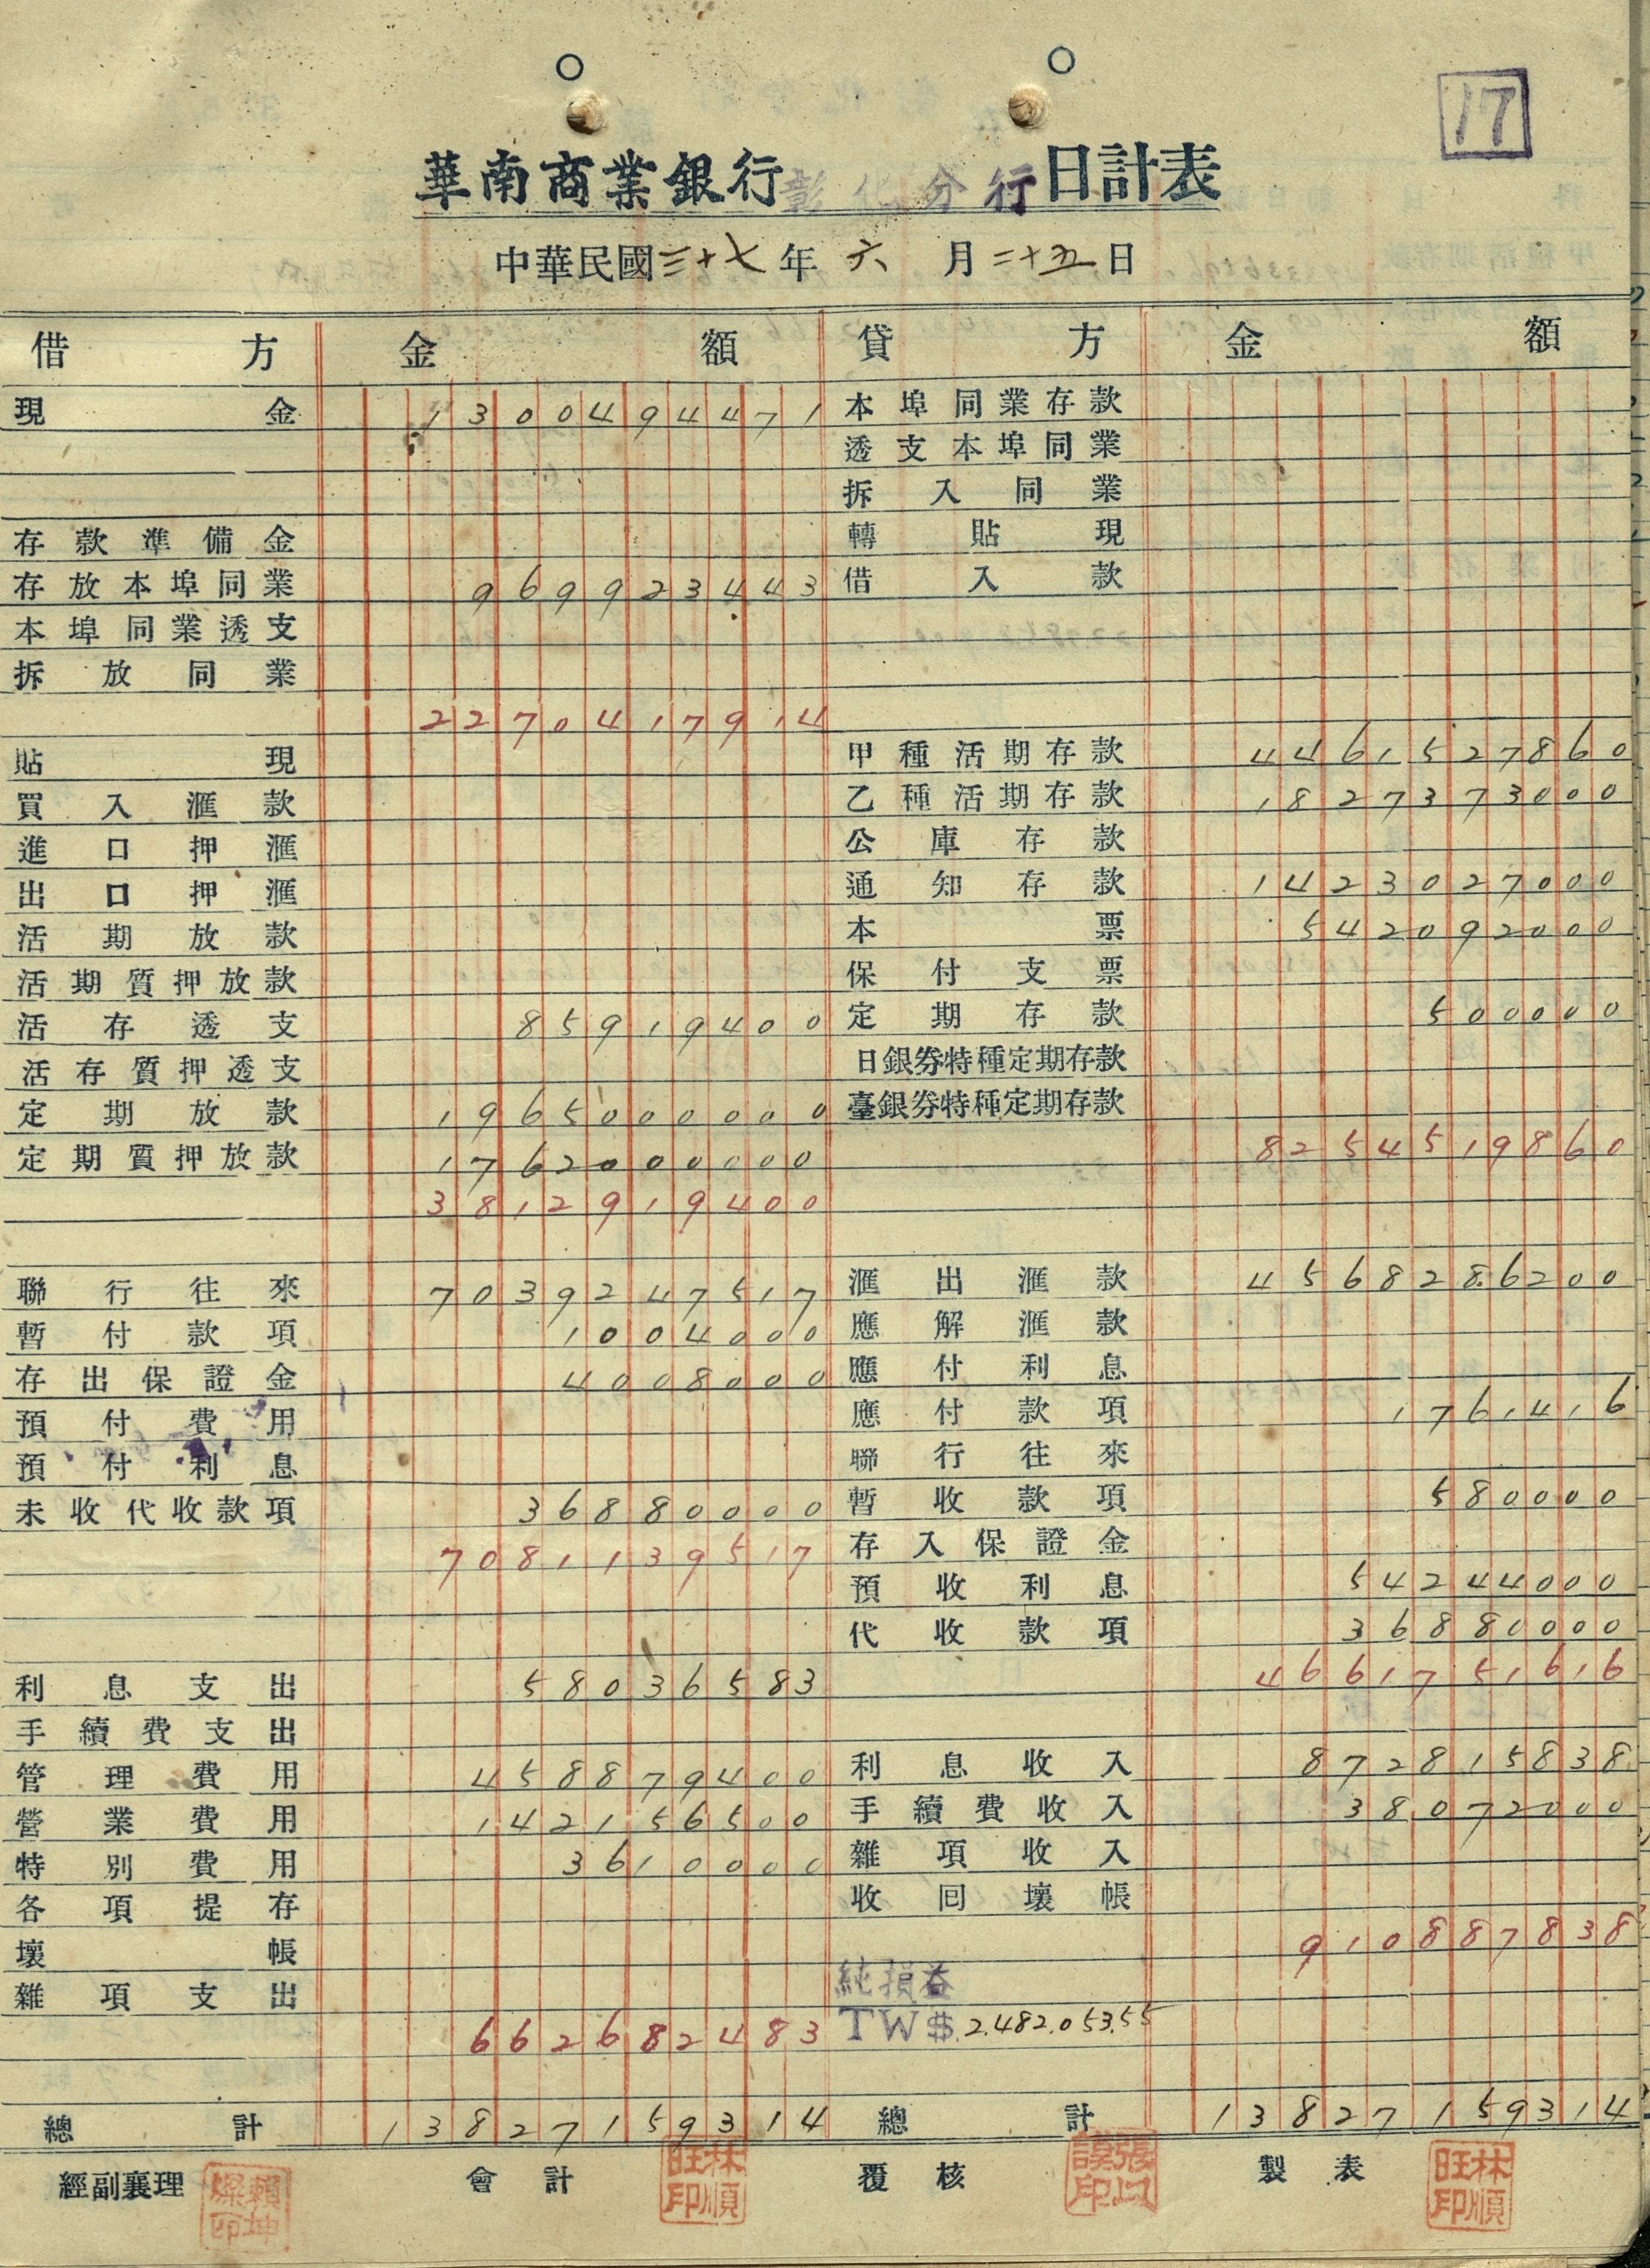 17
華南商業銀行彰化分行日計表
中華民國三十七年六月二十五日
借方 金額
現金 1300494471
存款準備金
存放本埠同業 969923443
本埠同業透支
拆放同業
2270417914
貼現
買入滙款
進口押滙
出口押滙
活期放款
活期質押放款
活存透支 85919400
活存質押透支
定期放款 1965000000
定期質押放款 1762000000
3812919400
聯行往來 7039247517
暫付款項 1004000
存出保證金 4008000
預付費用
預付利息
未收代收款項 36880000
7081139517
利息支出 58036583
手續費支出
管理費用 458879400
營業費用 142156500
特別費用 3610000
各項提存
壞帳
雜項支出
662682483
總計 13827159314
貸方 金額
本埠同業存款
透支本埠同業
拆入同業
轉貼現
借入款
甲種活期存款 4461527860
乙種活期存款 1827373000
公庫存款
通知存款 1423027000
本票 542092000
保付支票
定期存款 500000
日銀券特種定期存款
臺銀券特種定期存款
8254519860
滙出滙款 4568286200
應解滙款
應付利息
應付款項 1761416
聯行往來
暫收款項 580000
存入保證金
預收利息 54244000
代收款項 36880000
4661751616
利息收入 872815838
手續費收入 38072000
雜項收入
收回壞帳
910887838
純損益
TW$ 2.482.053.55
總計 13827159314
經副襄理 賴坤燦印 會計 林順旺印 覆核 製表 林順旺印